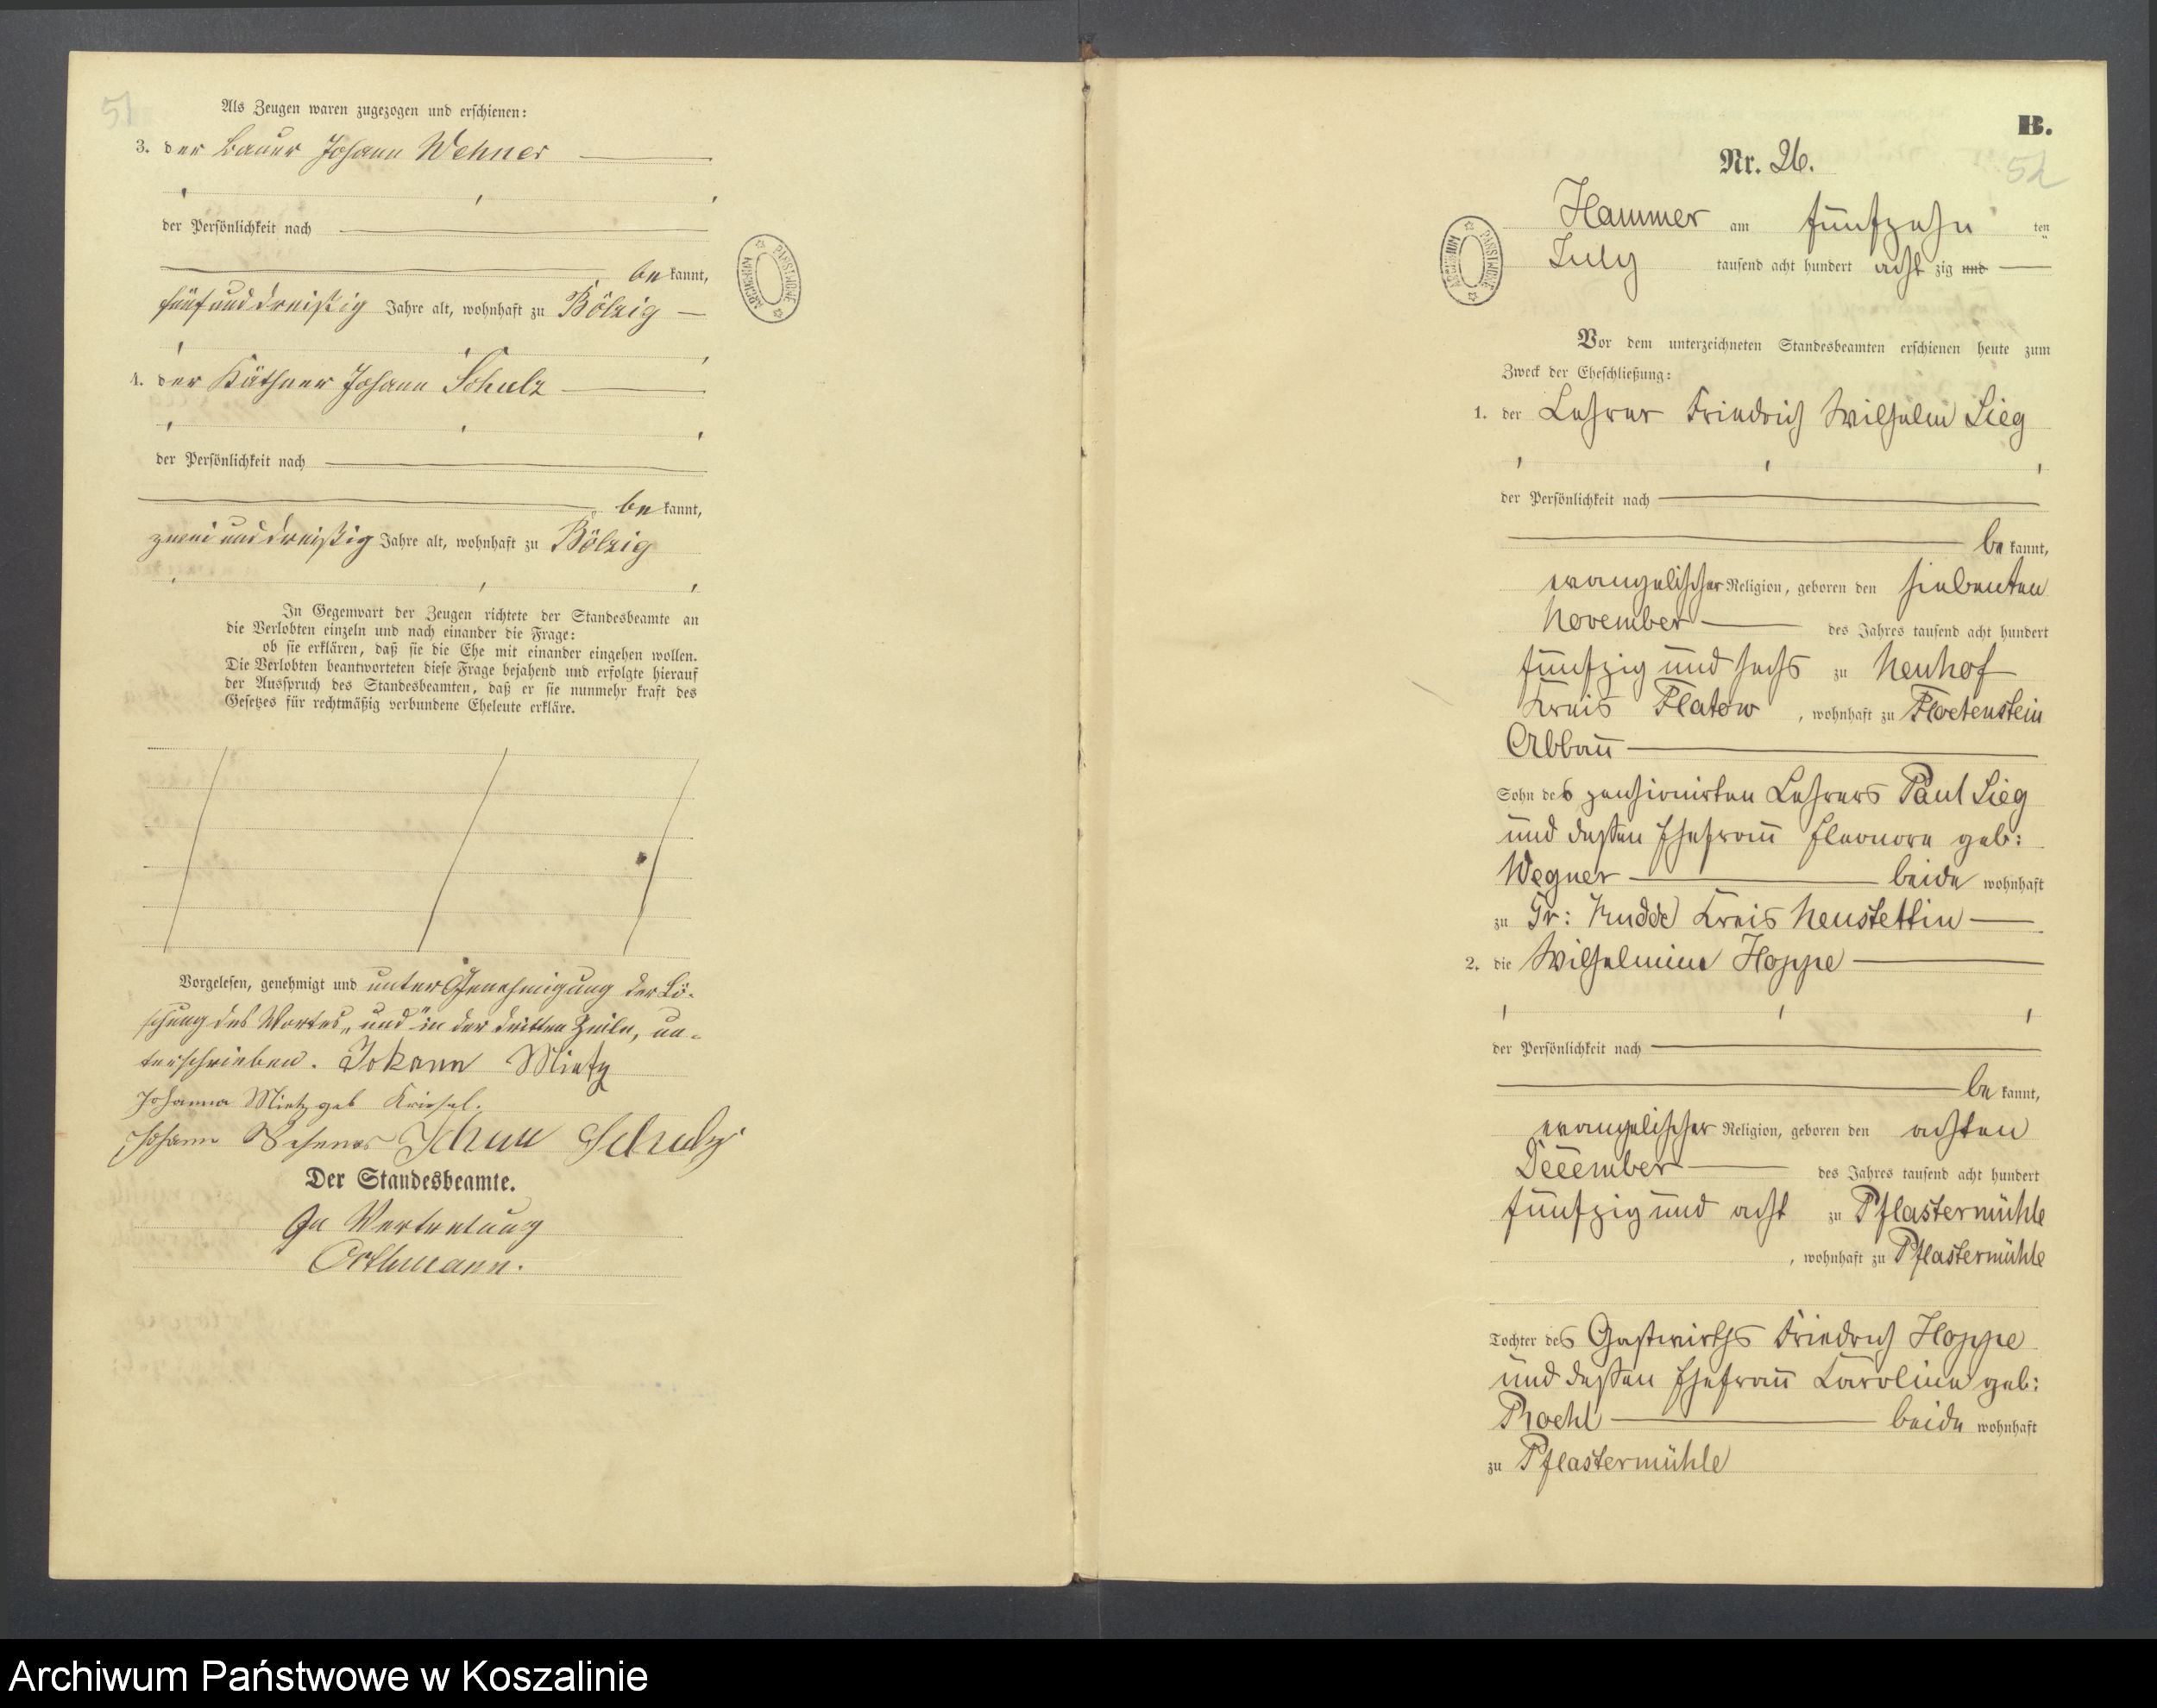 51
Als Zeugen waren zugezogen und erschienen:
3. der Bauer Johann Wehner
der Persönlichkeit nach
be kannt,
fünfunddreißig Jahre alt, wohnhaft zu Bölzig
4. der Käthner Johann Schulz
der Persönlichkeit nach
be kannt,
zweiunddreißig Jahre alt, wohnhaft zu Bölzig
In Gegenwart der Zeugen richtete der Standesbeamte an
die Verlobten einzeln und nach einander die Frage:
ob sie erklären, daß sie die Ehe mit einander eingehen wollen.
Die Verlobten beantworteten diese Frage bejahend und erfolgte hierauf
der Ausspruch des Standesbeamten, daß er sie nunmehr kraft des
Gesetzes für rechtmäßig verbundene Eheleute erkläre.
Vorgelesen, genehmigt und unter Genehmigung der Lö-
schung des Wortes „und" in der dritten Zeile, un-
terschrieben. Johann Mietz
Johanna Mietz geb Kriesel.
Johann Wehner Johann Schulz
Der Standesbeamte.
In Vertretung
Orthmann.
ARCHIWUM PAŃSTWOWE
B.
52
Nr. 26.
Hammer am fünfzehn ten
July tausend acht hundert acht zig und
ARCHIWUM PAŃSTWOWE
Vor dem unterzeichneten Standesbeamten erschienen heute zum
Zweck der Eheschließung:
1. der Lehrer Friedrich Wilhelm Sieg
der Persönlichkeit nach
be kannt,
evangelischer Religion, geboren den siebenten
November des Jahres tausend acht hundert
fünfzig und sechs zu Neuhof
Kreis Flatow, wohnhaft zu Floetenstein
Abbau
Sohn des pensionirten Lehrers Paul Sieg
und dessen Ehefrau Eleonore geb:
Wegner beide wohnhaft
zu Gr: Kudde Kreis Neustettin
2. die Wilhelmine Hoppe
der Persönlichkeit nach
be kannt,
evangelischer Religion, geboren den achten
December des Jahres tausend acht hundert
fünfzig und acht zu Pflastermühle
, wohnhaft zu Pflastermühle
Tochter des Gastwirths Friedrich Hoppe
und dessen Ehefrau Caroline geb:
beide wohnhaft
zu Pflastermühle
Archiwum Państwowe w Koszalinie